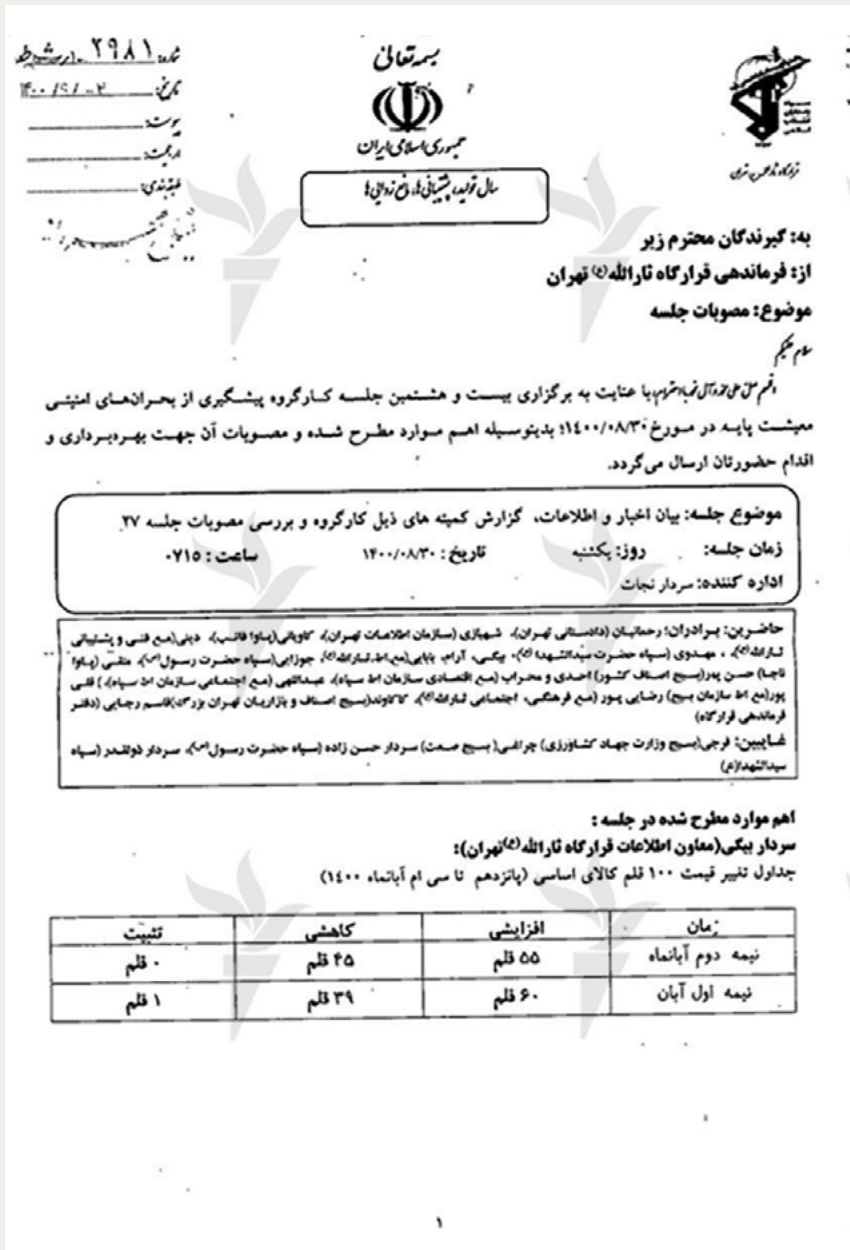 بسمه تعالی
جمهوری اسلامی ایران
سال تولید، پشتیبانی‌ها، مانع زدایی‌ها
شماره: ۲۹۸۱
تاریخ: ۱۴۰۰/۹/۰۲
پیوست:
طبقه‌بندی:
به: گیرندگان محترم زیر
از: فرماندهی قرارگاه ثارالله(ع) تهران
موضوع: مصوبات جلسه
سلام علیکم
با عنایت به برگزاری بیست و هشتمین جلسه کارگروه پیشگیری از بحران‌های امنیتی
معیشت پایه در مورخ ۱۴۰۰/۰۸/۳۰؛ بدینوسیله اهم موارد مطرح شده و مصوبات آن جهت بهره‌برداری و
اقدام حضورتان ارسال می‌گردد.
موضوع جلسه: بیان اخبار و اطلاعات، گزارش کمیته های ذیل کارگروه و بررسی مصوبات جلسه ۲۷
زمان جلسه: روز: یکشنبه تاریخ: ۱۴۰۰/۰۸/۳۰ ساعت: ۰۷۱۵
اداره کننده: سردار نجات
حاضرین: برادران: رحمانیان (دادستانی تهران)، شهبازی (سازمان اطلاعات تهران)، کاویانی(پاوا فاتب)، دینی(مع فنی و پشتیبانی
ثارالله(ع))، مهدوی (سپاه حضرت سیدالشهدا(ع))، بیگی، آرام، بابایی(مع اط ثارالله(ع))، جوزایی(سپاه حضرت رسول(ص))، متقی (پاوا
ناجا) حسن پور(بسیج اصناف کشور) احدی و محراب (مع اقتصادی سازمان اط سپاه)، عبداللهی (مع اجتماعی سازمان اط سپاه)، قلی
پور(مع اط سازمان بسیج) رضایی پور (مع فرهنگی، اجتماعی ثارالله(ع))، کاکاوند(بسیج اصناف و بازاریان تهران بزرگ)قاسم رجایی (دفتر
فرماندهی قرارگاه)
غایبین: فرجی(بسیج وزارت جهاد کشاورزی) چراغی(بسیج صمت) سردار حسن زاده (سپاه حضرت رسول(ص))، سردار ذولقدر (سپاه
سیدالشهدا(ع))
اهم موارد مطرح شده در جلسه :
سردار بیگی(معاون اطلاعات قرارگاه ثارالله(ع)تهران):
جداول تغییر قیمت ۱۰۰ قلم کالای اساسی (پانزدهم تا سی ام آبانماه ۱۴۰۰)
زمان افزایشی کاهشی تثبیت
نیمه دوم آبانماه ۵۵ قلم ۴۵ قلم ۰ قلم
نیمه اول آبان ۶۰ قلم ۳۹ قلم ۱ قلم
۱